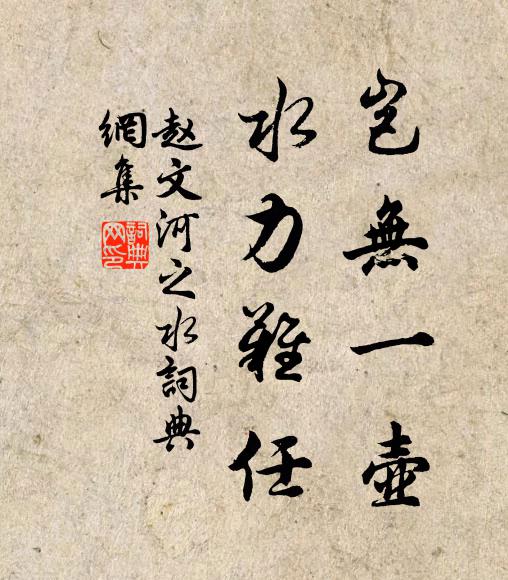 岂無一壺
水力難任
赵文河之水詞典
網集
詞典
网印